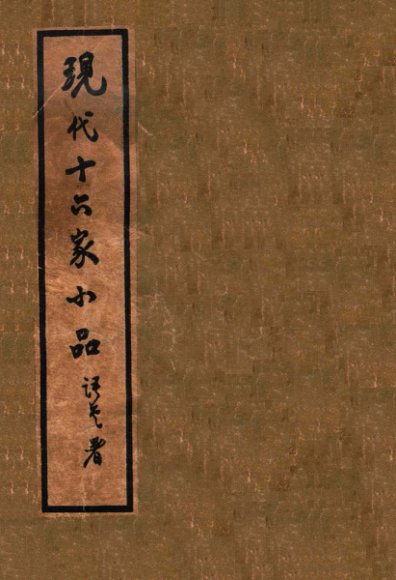 現代十六家小品
署